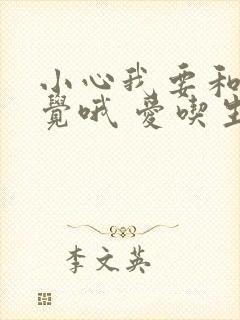 小心我要和
覺哦 愛喫生
李文英